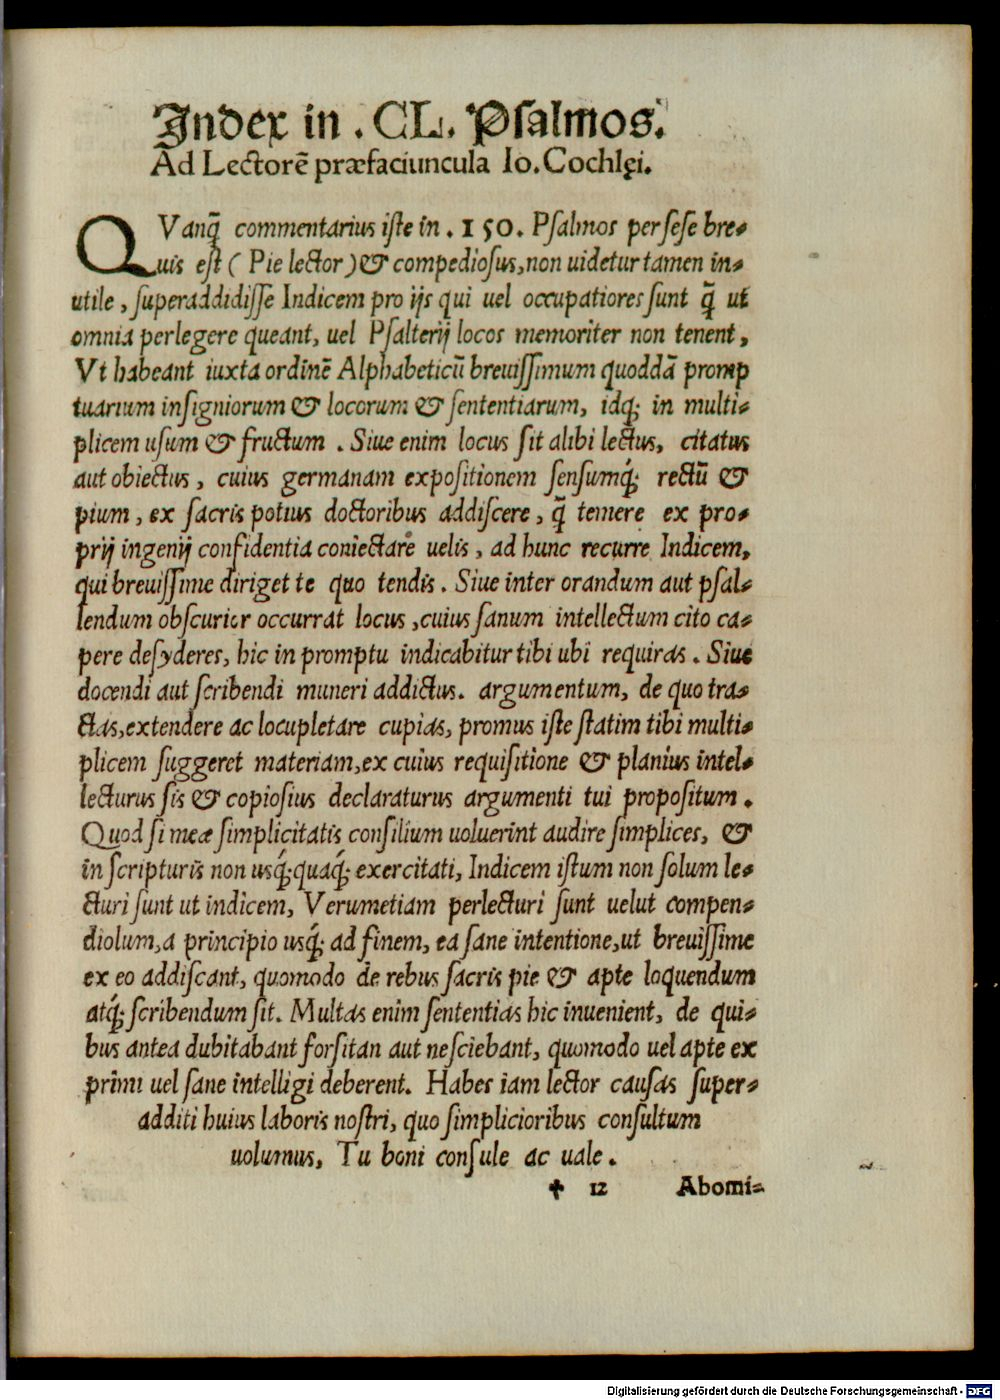 Index in . CL. Psalmos.
Ad Lectorē præfaciuncula Io. Cochlęi.
QVanq̄ commentarius iste in . 150. Psalmos per sese bre⸗
uis est ( Pie lector ) & compediosus, non uidetur tamen in⸗
utile, superaddidisse Indicem pro ijs qui uel occupatiores sunt q̄ ut
omnia perlegere queant, uel Psalterij locos memoriter non tenent,
Vt habeant iuxta ordinē Alphabeticū breuissimum quoddā promp
tuarium insigniorum & locorum & sententiarum, idq; in multi⸗
plicem usum & fructum . Siue enim locus sit alibi lectus, citatus
aut obiectus, cuius germanam expositionem sensumq́; rectū &
pium, ex sacris potius doctoribus addiscere, q̄ temere ex pro⸗
prij ingenij confidentia coniectare uelis, ad hunc recurre Indicem,
qui breuissime diriget te quo tendis . Siue inter orandum aut psal⸗
lendum obscurior occurrat locus, cuius sanum intellectum cito ca⸗
pere desyderes, hic in promptu indicabitur tibi ubi requiras . Siue
docendi aut scribendi muneri addictus. argumentum, de quo tra⸗
ctas, extendere ac locupletare cupias, promus iste statim tibi multi⸗
plicem suggeret materiam, ex cuius requisitione & planius intel⸗
lecturus sis & copiosius declaraturus argumenti tui propositum .
Quod si meæ simplicitatis consilium uoluerint audire simplices, &
in scripturis non usq́; quaq́; exercitati, Indicem istum non solum le⸗
cturi sunt ut indicem, Verumetiam perlecturi sunt uelut compen⸗
diolum, a principio usq́; ad finem, ea sane intentione, ut breuissime
ex eo addiscant, quomodo de rebus sacris pie & apte loquendum
atq́; scribendum sit. Multas enim sententias hic inuenient, de qui⸗
bus antea dubitabant forsitan aut nesciebant, quomodo uel apte ex
primi uel sane intelligi deberent. Habes iam lector causas super⸗
additi huius laboris nostri, quo simplicioribus consultum
uolumus, Tu boni consule ac uale .
✝ 12 Abomi⸗
Digitalisierung gefördert durch die Deutsche Forschungsgemeinschaft - DFG